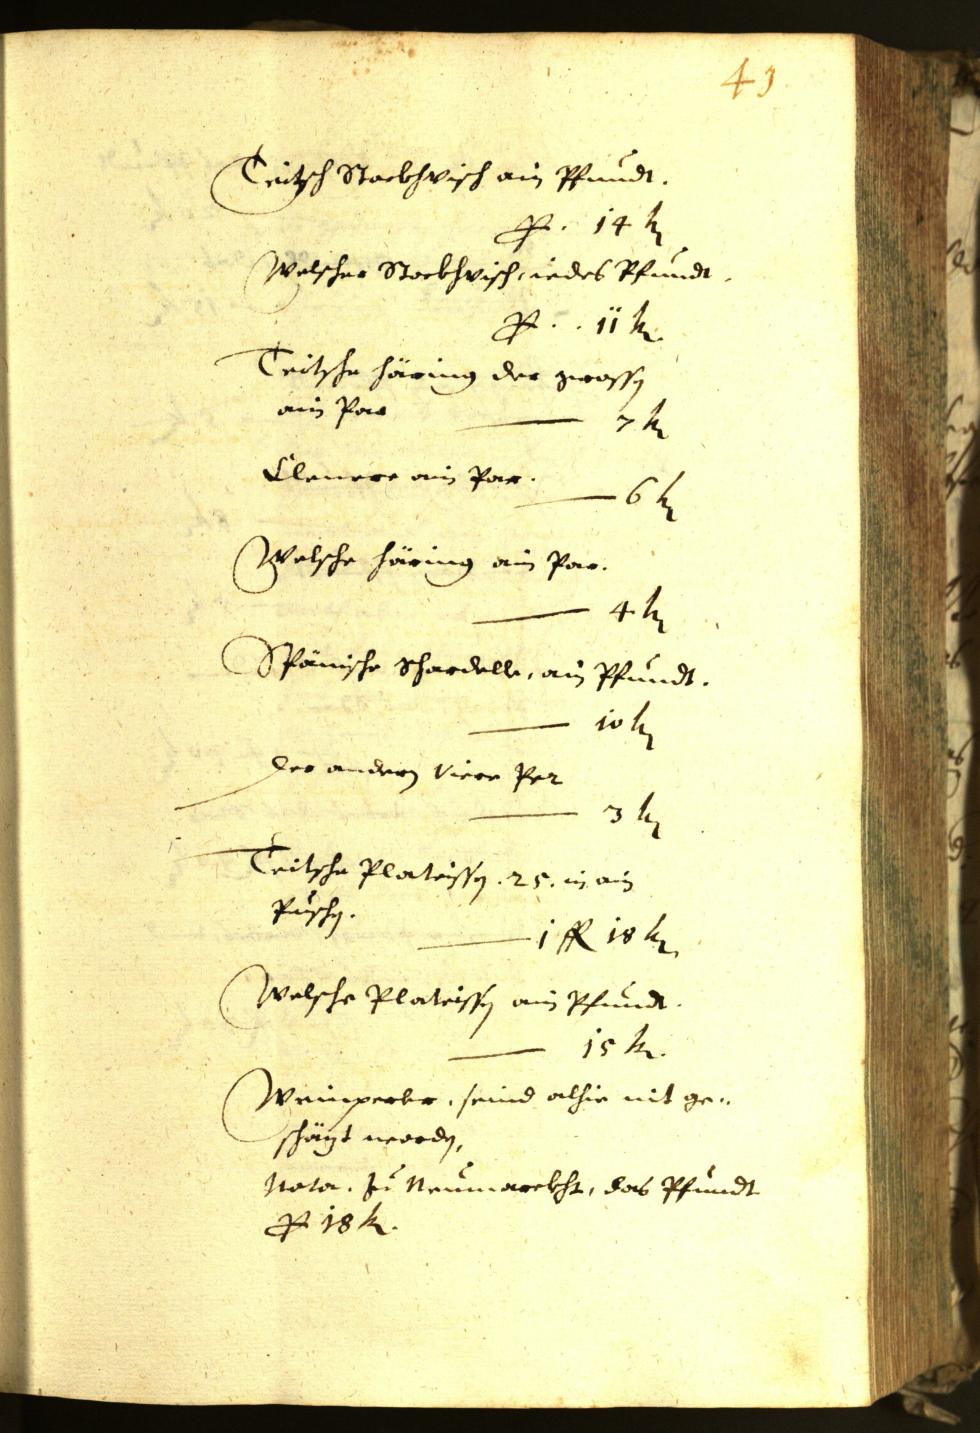 43
Teitsch Stockhvisch ain Pfundt.
P. 14 k
Welscher Stockhvisch, iedes Pfundt.
P. . 11 k.
Teitsche häring der grossen
ain Par — 7 k
Clenere ain Par. — 6 k
Welsche häring ain Par.
— 4 k
Spänische Schardelle, ain Pfundt.
— 10 k
Der andern Viere Per
— 3 k
Teitsche Plateissen. 25. in ain
Puschn.
— 1 fR 18 k.
Welsche Plateissen ain Pfundt.
— 15 k.
Weinperber, seind alhie nit ge„
schäzt worden,
Nota. Zu Neumarckht, das Pfundt
P 18 k.